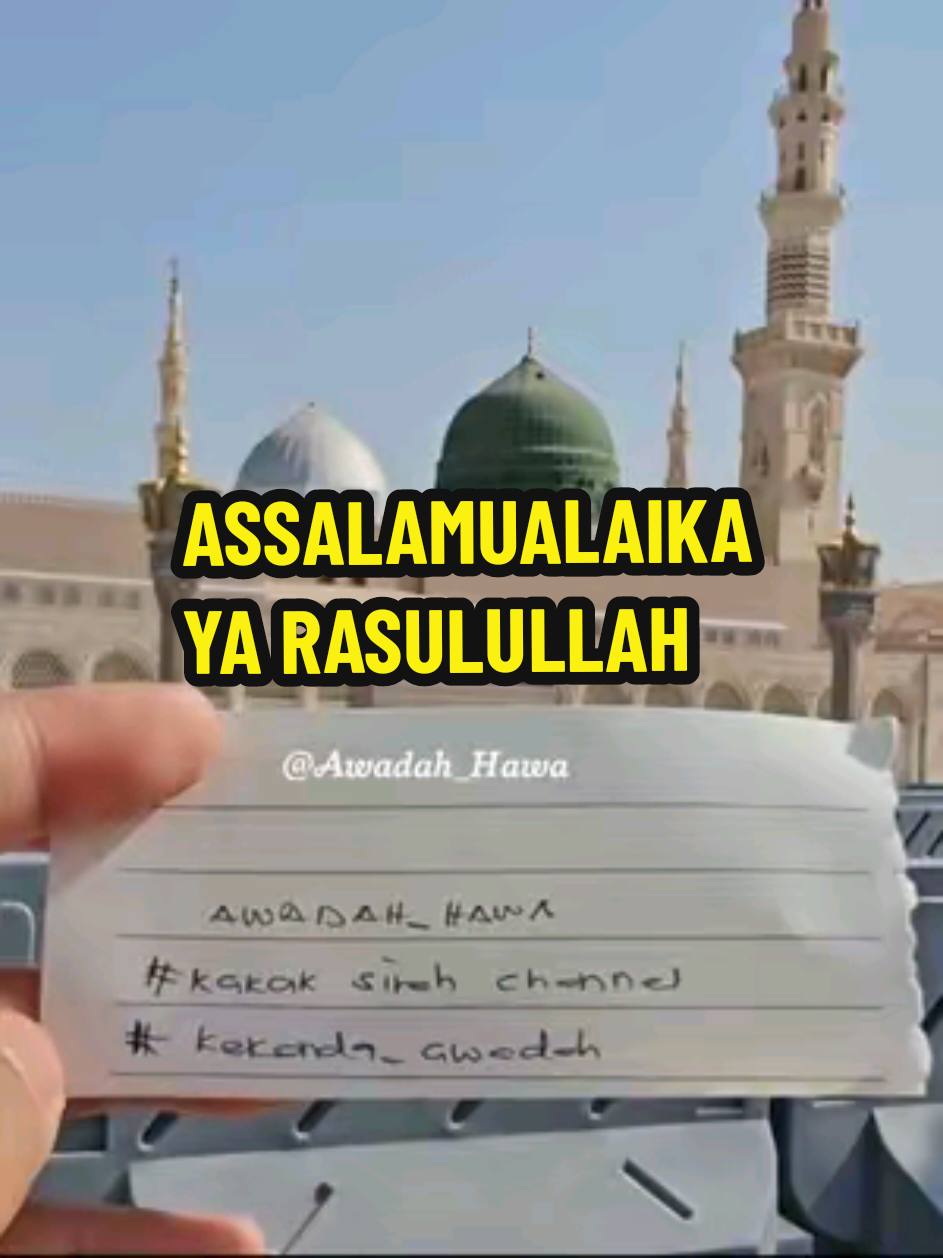 ASSALAMUALAIKA
YA RASULULLAH
@Awadah_Hawa
AWADAH_HAWA
#kakak sireh channel
# kekanda_awadah